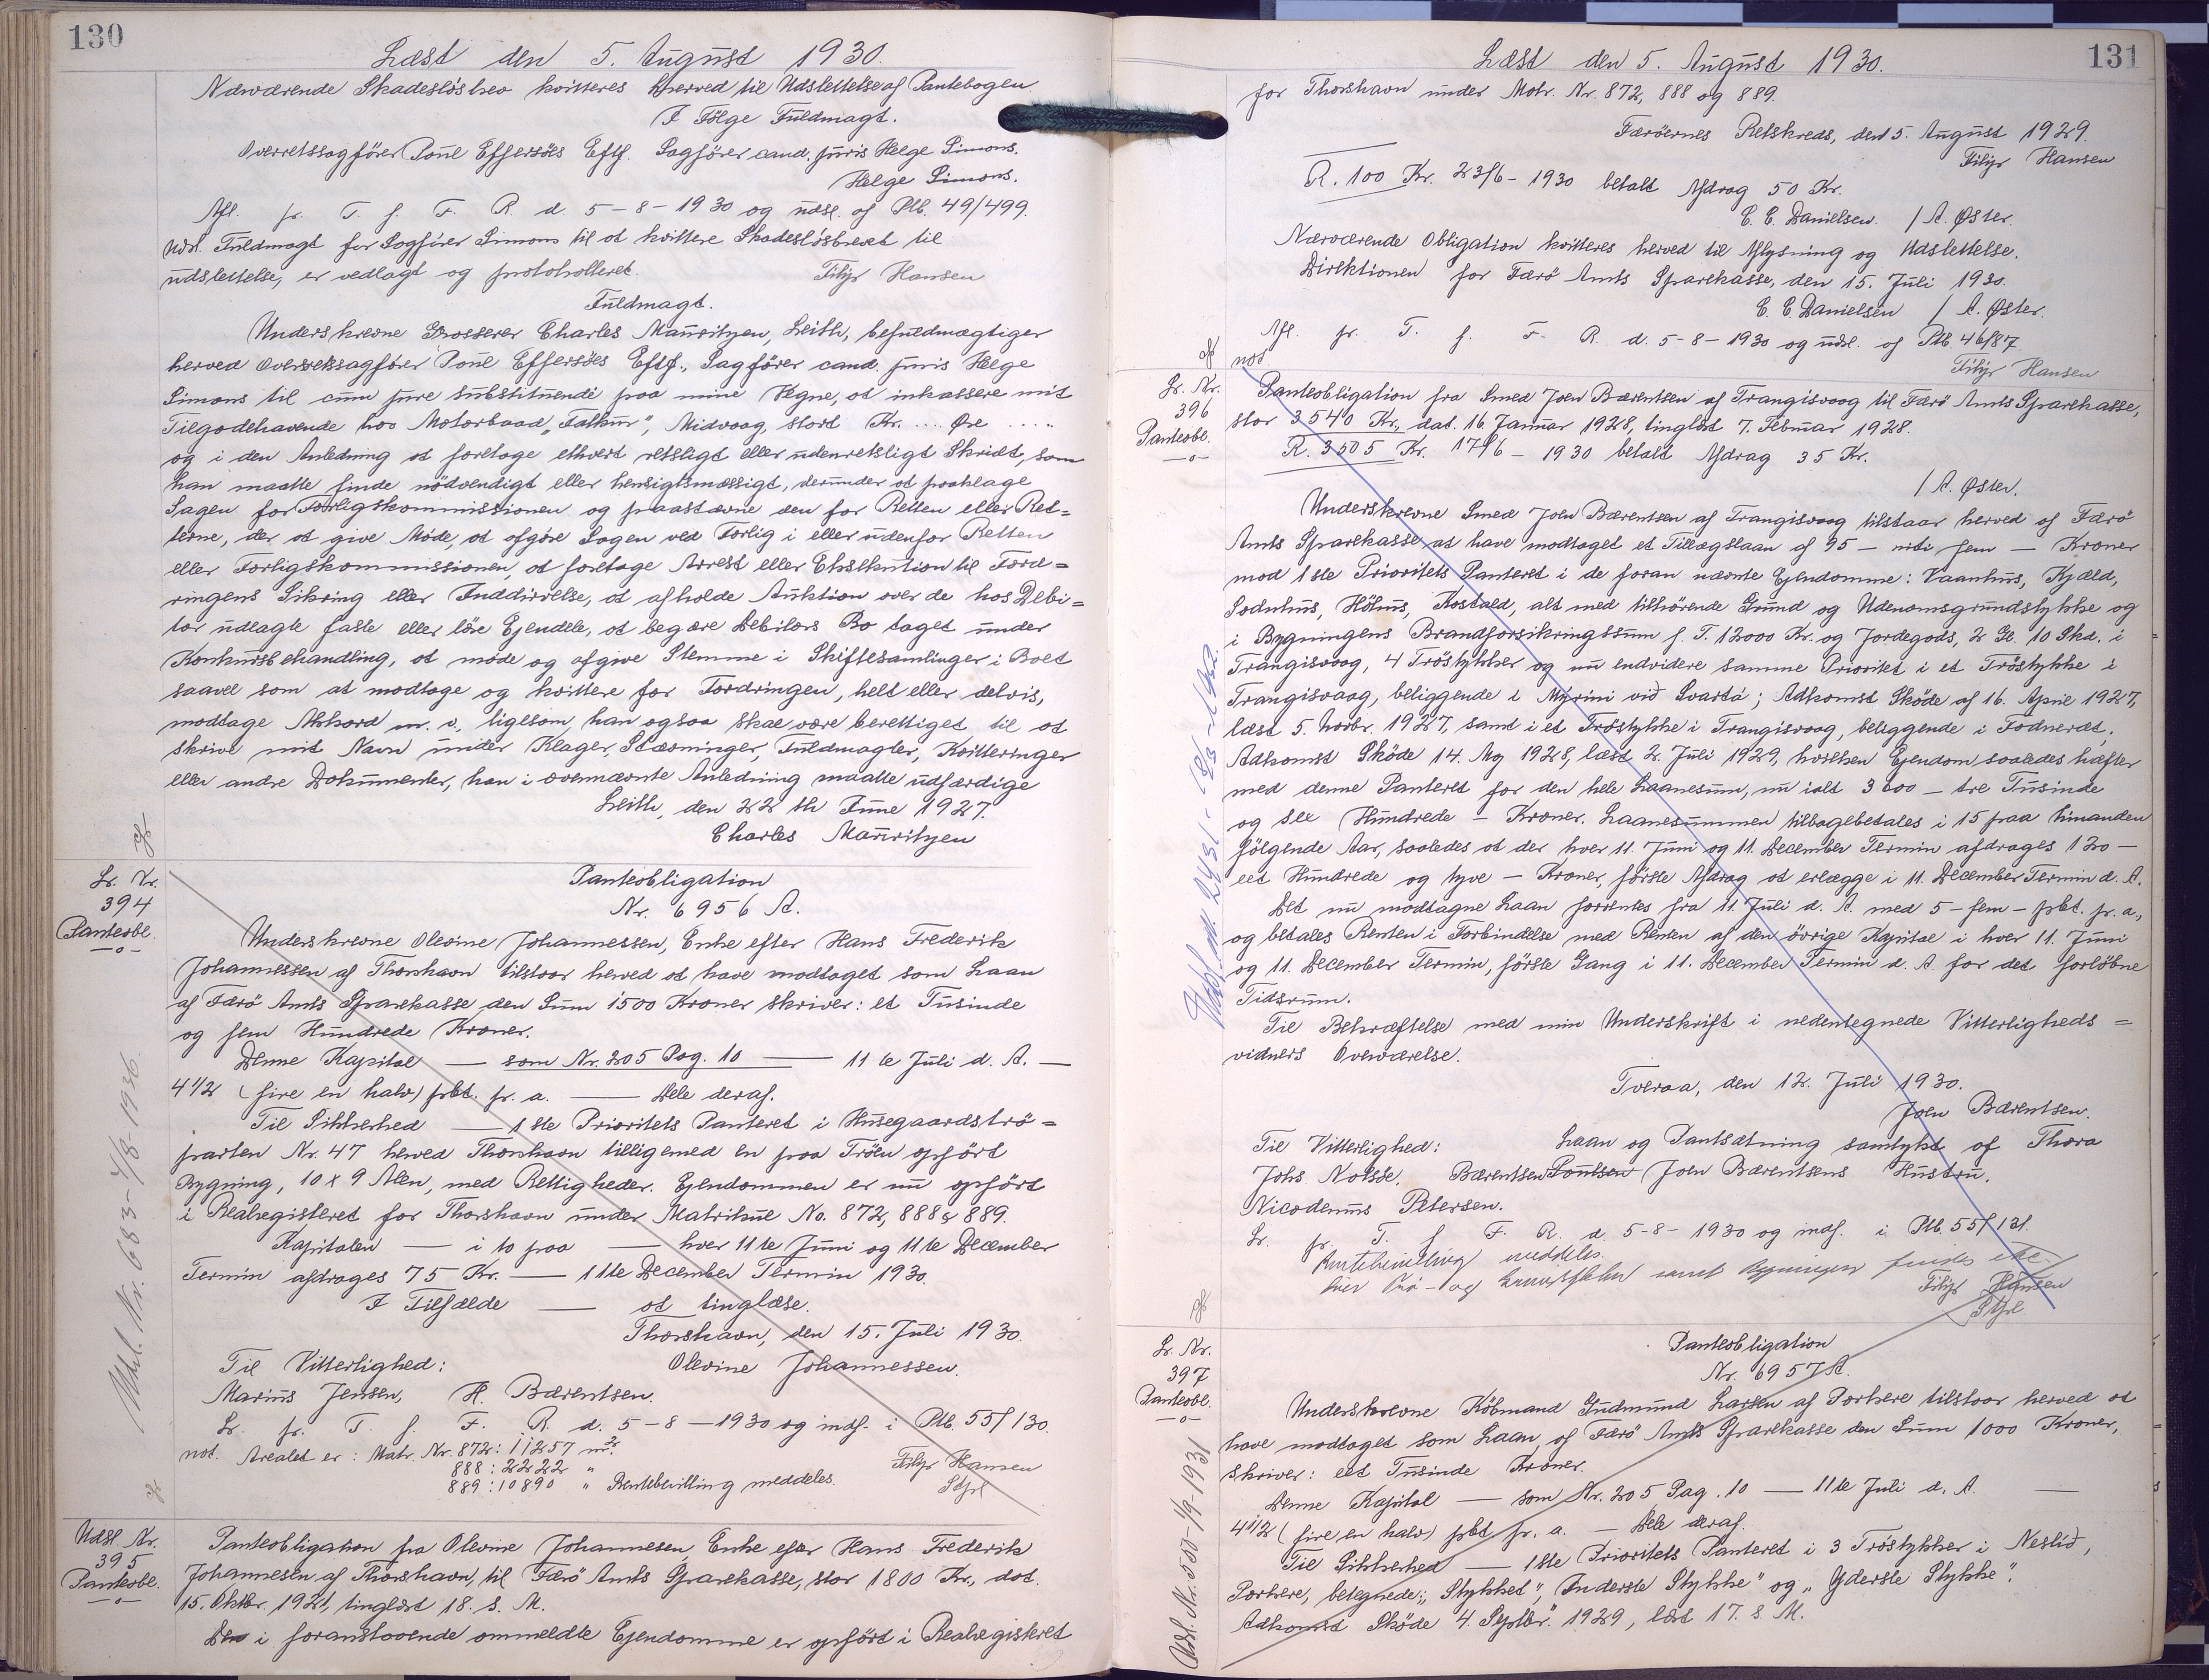 130
Læst den 5. August 1930.
Nærværende Skadesløsbrev kvitteres herved til Udslettelse af Pantebogen
I Følge Fuldmagt.
Overretssagfører Poul Effersøes Eftf. Sagfører cand. juris Helge Simons.
Helge Simons.
Afl. fr. T. f. F. R. d. 5-8-1930 og udsl. af Ptb. 49/499.
not. Fuldmagt for Sagfører Simons til at kvittere Skadesløsbrevet til
udslettelse, er vedlagt og protokolleret. Filip Hansen
Fuldmagt.
Underskrevne Grosserer Charles Mauritzen, Leith, befuldmægtiger
herved Overretssagfører Poul Effersöes Eftf., Sagfører cand. juris Helge
Simons til cum jure substituendi paa mine Vegne, at inkassere mit
Tilgodehavende hos Motorbaad "Falkur", Midvaag, stort Kr. .... Øre ....
og i den Anledning at foretage ethvert retsligt eller udenretsligt Skridt, som
han maatte finde nødvendigt eller hensigtsmæssigt, derunder at paaklage
Sagen for Forligskommissionen og paastævne den for Retten eller Ret=
terne, der at give Møde, at afgøre Sagen ved Forlig i eller udenfor Retten
eller Forligskommissionen, at foretage Arrest eller Eksekution til Ford=
ringens Sikring eller Inddrivelse, at afholde Auktion over de hos Debi=
tor udlagte faste eller løse Ejendele, at begære Debitors Bo taget under
Konkursbehandling, at møde og afgive Stemme i Skiftesamlinger i Boet
saavel som at modtage og kvittere for Fordringen, helt eller delvis,
modtage Akkord m.v., ligesom han ogsaa skal være berettiget til at
skrive mit Navn under Klager, Stævninger, Fuldmagter, Kvitteringer
eller andre Dokumenter, han i ovennævnte Anledning maatte udfærdige
Leith, den 22 th June 1927.
Charles Mauritzen
Lr. Nr.
394
Panteobl.
Panteobligation
Nr. 6956 A.
Underskrevne Olevine Johannessen, Enke efter Hans Frederik
Johannessen af Thorshavn tilstaar herved at have modtaget som Laan
af Færö Amts Sparekasse den Sum 1500 Kroner skriver: et Tusinde
og fem Hundrede Kroner.
Denne Kapital — som Nr. 205 Pag. 10 — 11te Juli d. A. —
4 1/2 (fire en halv) pCt. pr. a. — Dele deraf.
Til Sikkerhed — 1ste Prioritets Panteret i Husegaardströ=
parten Nr. 47 herved Thorshavn tilligemed en paa Tröen opfört
Bygning, 10 x 9 Alen, med Rettigheder. Ejendommen er nu opfört
i Realregisteret for Thorshavn under Matrikul No. 872, 888 & 889.
Kapitalen — i to paa — hver 11te Juni og 11te December
Termin afdrages 75 Kr. — 11te December Termin 1930.
I Tilfælde — at tinglæse.
Thorshavn, den 15. Juli 1930.
Til Vitterlighed: Olevine Johannessen.
Marius Jensen, H. Bærentsen.
Lr. fr. T. f. F. R. d. 5-8-1930 og indf. i Ptb. 55/130.
not. Arealet er: Matr. Nr. 872: 11257 m2.
888: 2222 "
889: 10890 " Rentebevilling meddeles.
Filip Hansen
Stpl
Udsl. Nr. 683 - 4/8-1936
Udsl. Nr.
395
Panteobl.
Panteobligation fra Olevine Johannesen, Enke efter Hans Frederik
Johannesen af Thorshavn, til Færö Amts Sparekasse, stor 1800 Kr., dat.
15. Oktbr. 1921, tinglæst 18. s. M.
Den i foranstaaende ommeldte Ejendomme er opført i Realregisteret
131
Læst den 5. August 1930.
for Thorshavn under Matr. Nr. 872, 888 og 889.
Færöernes Retskreds, den 5. August 1929.
Filip Hansen
R. 100 Kr. 23/6-1930 betalt Afdrag 50 Kr.
C. C. Danielsen. / A. Øster.
Nærværende Obligation kvitteres herved til Aflysning og Udslettelse.
Direktionen for Færö Amts Sparekasse, den 15. Juli 1930.
C. C. Danielsen / A. Øster.
Afl. fr. T. f. F. R. d. 5-8-1930 og udsl. af Ptb 46/87
not Filip Hansen
Lr. Nr.
396
Panteobl.
Panteobligation fra Smed Joen Bærentsen af Trangisvaag til Færö Amts Sparekasse,
stor 3540 Kr., dat. 16. Januar 1928, tinglæst 7. Februar 1928.
R. 3505 Kr. 17/6-1930 betalt Afdrag 35 Kr.
/ A. Øster.
Underskrevne Smed Joen Bærentsen af Trangisvaag tilstaar herved af Færö
Amts Sparekasse at have modtaget et Tillægslaan af 95 — niti fem — Kroner
mod 1ste Prioritets Panteret i de foran nævnte Ejendomme: Vaanhus, Kjæld,
Sodnhus, Höhus, Kostald, alt med tilhørende Grund og Udenomsgrundstykke og
i Bygningens Brandforsikringssum f. T. 12000 Kr. og Jordegods, 2 Gl. 10 Skd. i
Trangisvaag, 4 Tröstykker og nu endvidere samme Prioritet i et Tröstykke i
Trangisvaag, beliggende i Mýrini við Svartá; Adkomst Sköde af 16. April 1927,
læst 5. Novbr. 1927, samt i et Tröstykke i Trangisvaag, beliggende i Fodneræt,
Adkomst Sköde 14. Maj 1928, læst 2. Juli 1929, hvilken Ejendom saaledes hæfter
med denne Panteret for den hele Laanesum, nu ialt 3600 — tre Tusinde
og sex Hundrede — Kroner. Laanesummen tilbagebetales i 15 paa hinanden
følgende Aar, saaledes at der hver 11. Juni og 11. December Termin afdrages 120 —
eet Hundrede og tyve — Kroner, første Afdrag at erlægge i 11. December Termin d. A.
Det nu modtagne Laan forrentes fra 11. Juli d. A. med 5 — fem — pCt. pr. a.,
og betales Renten i Forbindelse med Renten af den övrige Kapital i hver 11. Juni
og 11. December Termin, første Gang i 11. December Termin d. A. for det forløbne
Tidsrum.
Til Bekræftelse med min Underskrift i nedentegnede Vitterligheds=
vidners Overværelse.
Tveraa, den 12. Juli 1930.
Joen Bærentsen.
Til Vitterlighed: Laan og Pantsætning samtykt af Thora
Johs. Nolsøe. Bærentsen Poulsen Joen Bærentsens Hustru.
Nicodemus Petersen.
Lr. fr. T. f. F. R. d. 5-8-1930 og indf. i Ptb. 55/131.
Rentebevilling meddeles.
Filip Hansen
Stpl
Lr. Nr.
397
Panteobl.
Panteobligation
Nr. 6957 A.
Underskrevne Köbmand Gudmund Larsen af Porkere tilstaar herved at
have modtaget som Laan af Færö Amts Sparekasse den Sum 1000 Kroner,
skriver: eet Tusinde Kroner.
Denne Kapital — som Nr. 205 Pag. 10 — 11te Juli d. A. —
4 1/2 (fire en halv) pCt pr. a. — Dele deraf.
Til Sikkerhed — 1ste Prioritets Panteret i 3 Tröstykker i Neslið,
Porkere, betegnede: "Stykket", "Inderste Stykke" og "Yderste Stykke".
Adkomst Sköde 4. Septbr. 1929, læst 17. s. M.